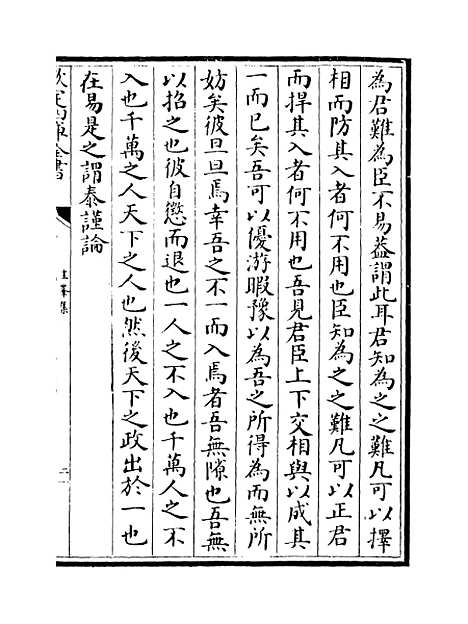 為君難為臣不易葢謂此耳君知為之之難凡可以擇
相而防其入者何不用也臣知為之之難凡可以正君
而捍其入者何不用也吾見君臣上下交相與以成其
一而已矣吾可以優游暇豫以為吾之所得為而無所
妨矣彼旦旦焉幸吾之不一而入焉者吾無隙也吾無
以招之也彼自懲而退也一人之不入也千萬人之不
入也千萬之人天下之人也然後天下之政出於一也
在易是之謂泰謹論
欽定四庫全書